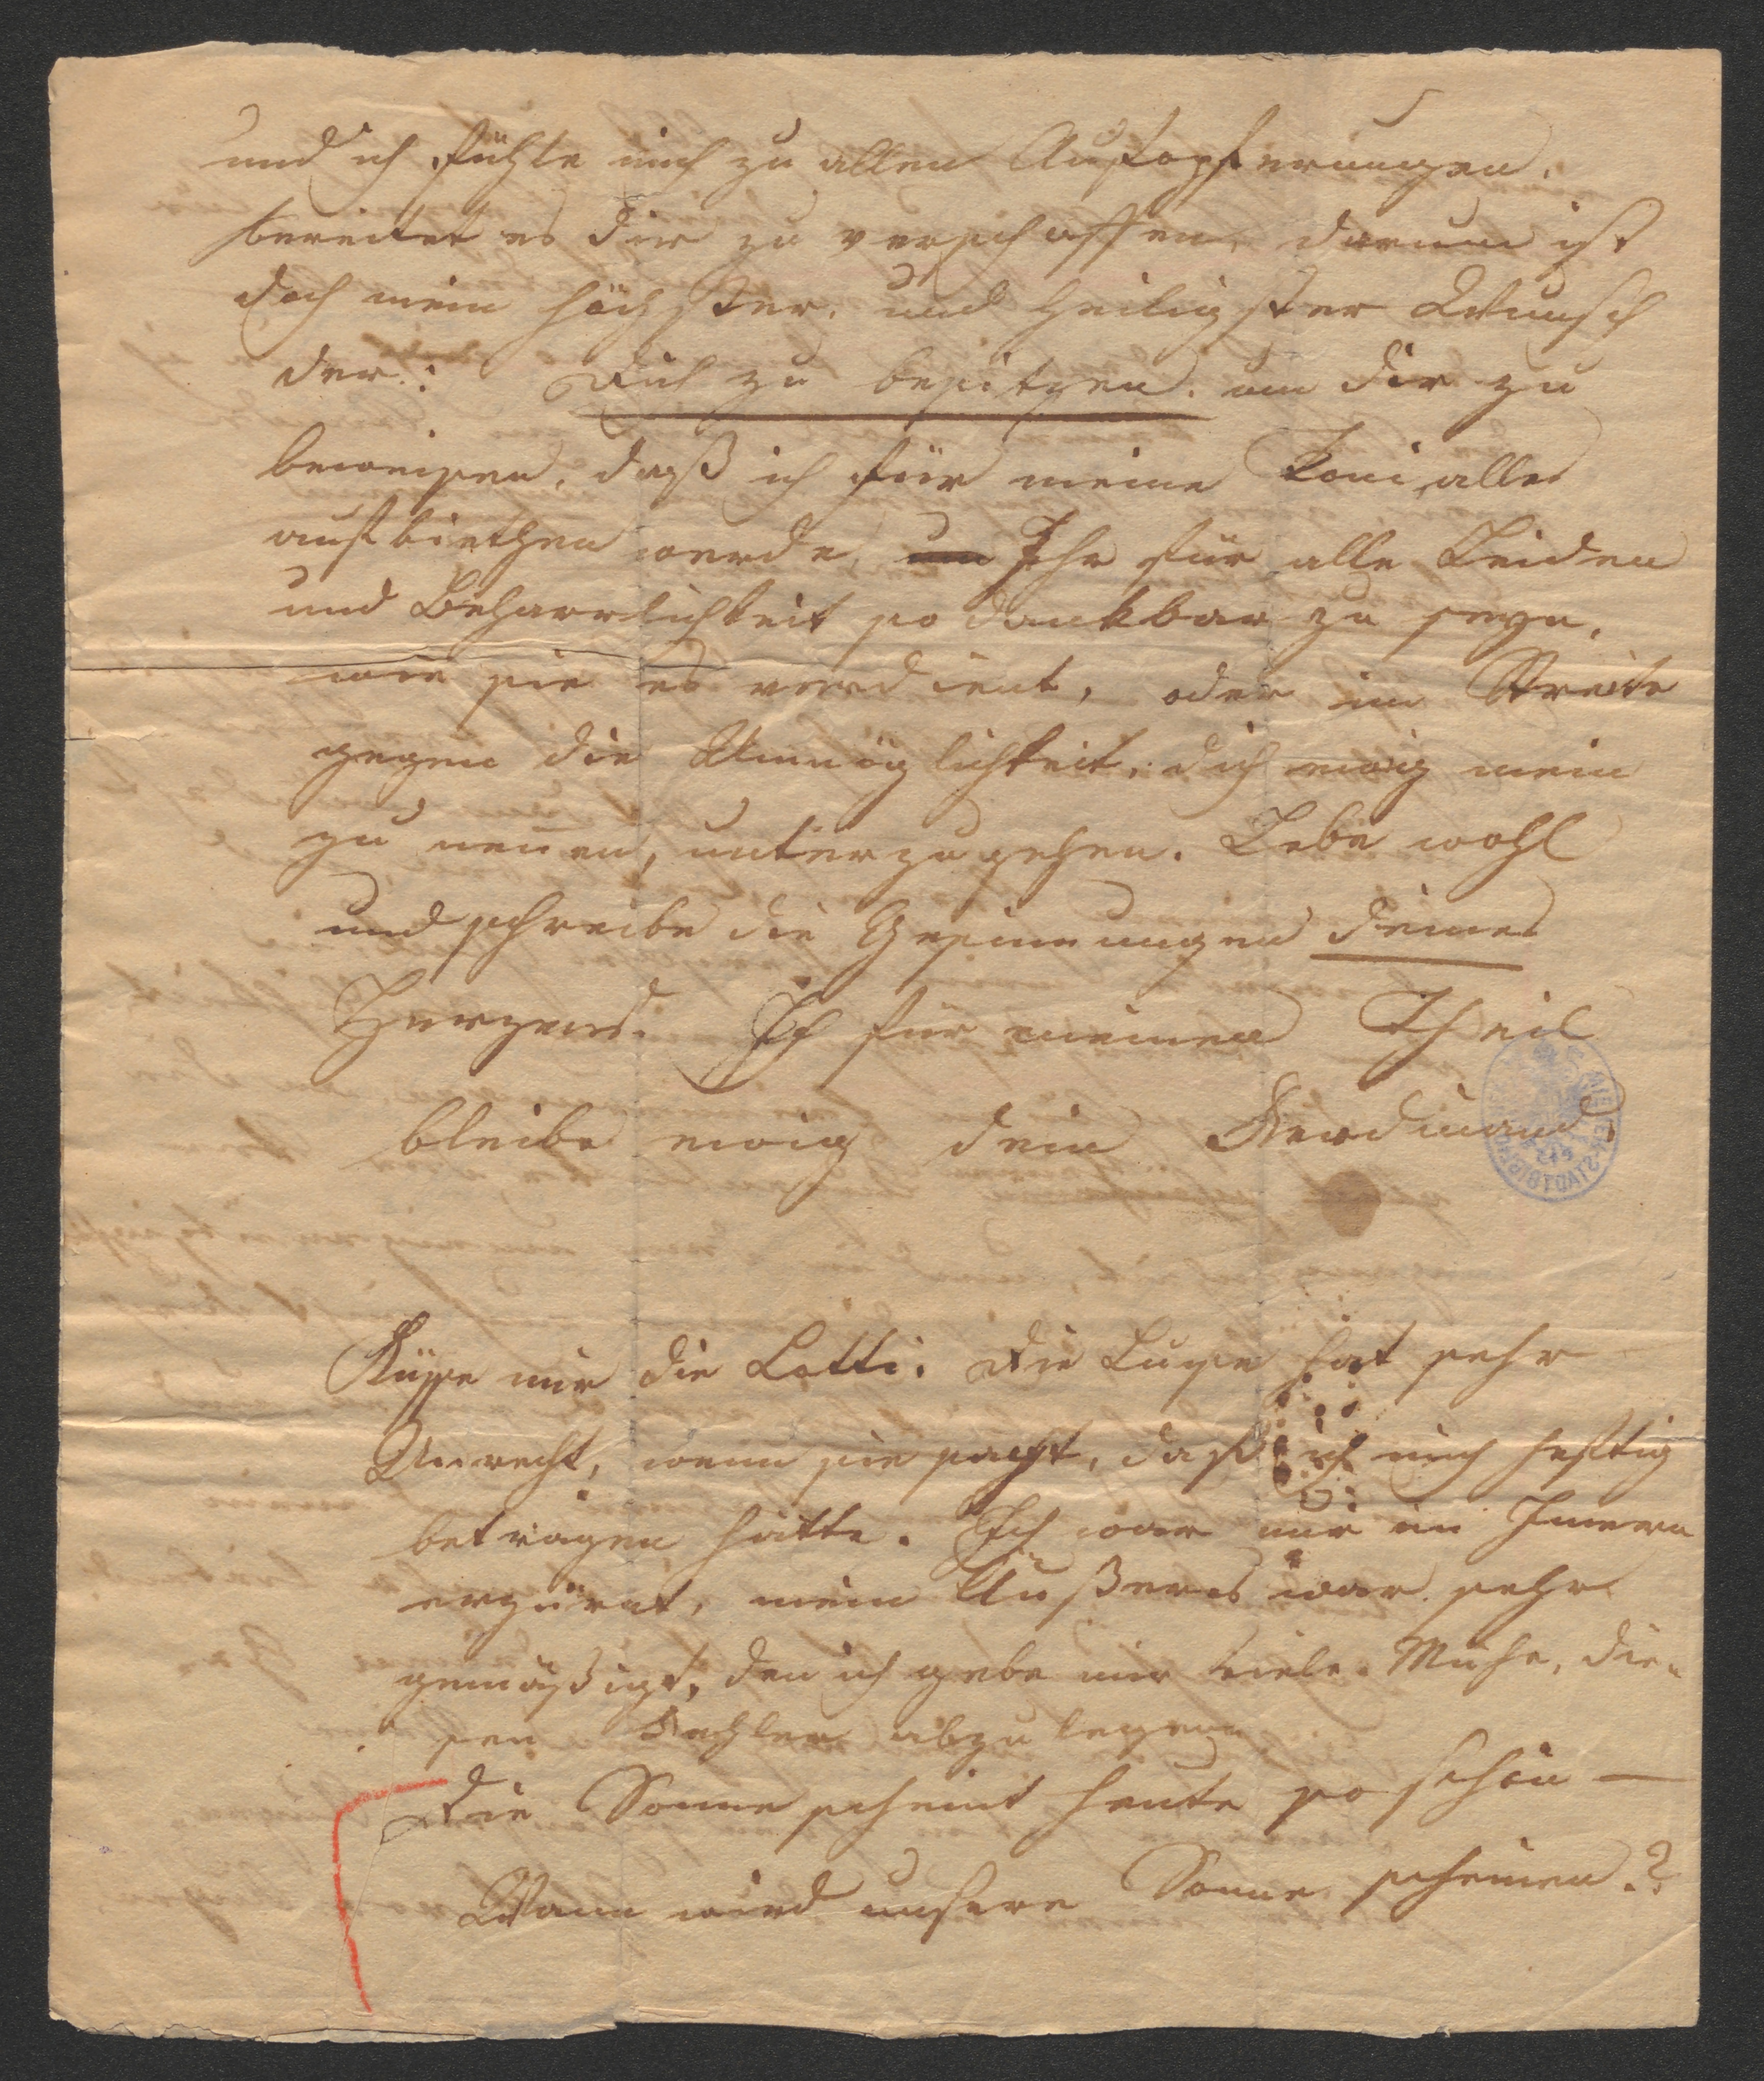 und ich fühle mich zu allen Aufopferungen
bereitet es dir zu verschaffen, darum ist
doch mein höchster, und heiligster Wunsch
der: dich zu besitzen, um dir zu
beweisen, daß ich für meine Toni alles
aufbiethen werde, um Ihr für alle Leiden
und Beharrlichkeit so dankbar zu seyn,
wie sie es verdient, oder im Streite
gegen die Unmöglichkeit, dich ewig mein
zu nennen, unterzugehen. Lebe wohl
und schreibe die Gesinnungen deines
Herzens. Ich für meinen Theil
bleibe ewig dein Ferdinand.
Küsse mir die Lotti. Die hat sehr
Unrecht, wenn sie sagt, daß ich mich heftig
betragen hätte. Ich war nur im Innern
erzürnt, mein Äußeres war sehr
gemäßigt, den ich gebe mir viele Mühe, die-
sen Fehler abzulegen.
Die Sonne scheint heute so schön —
Wann wird unsere Sonne scheinen?